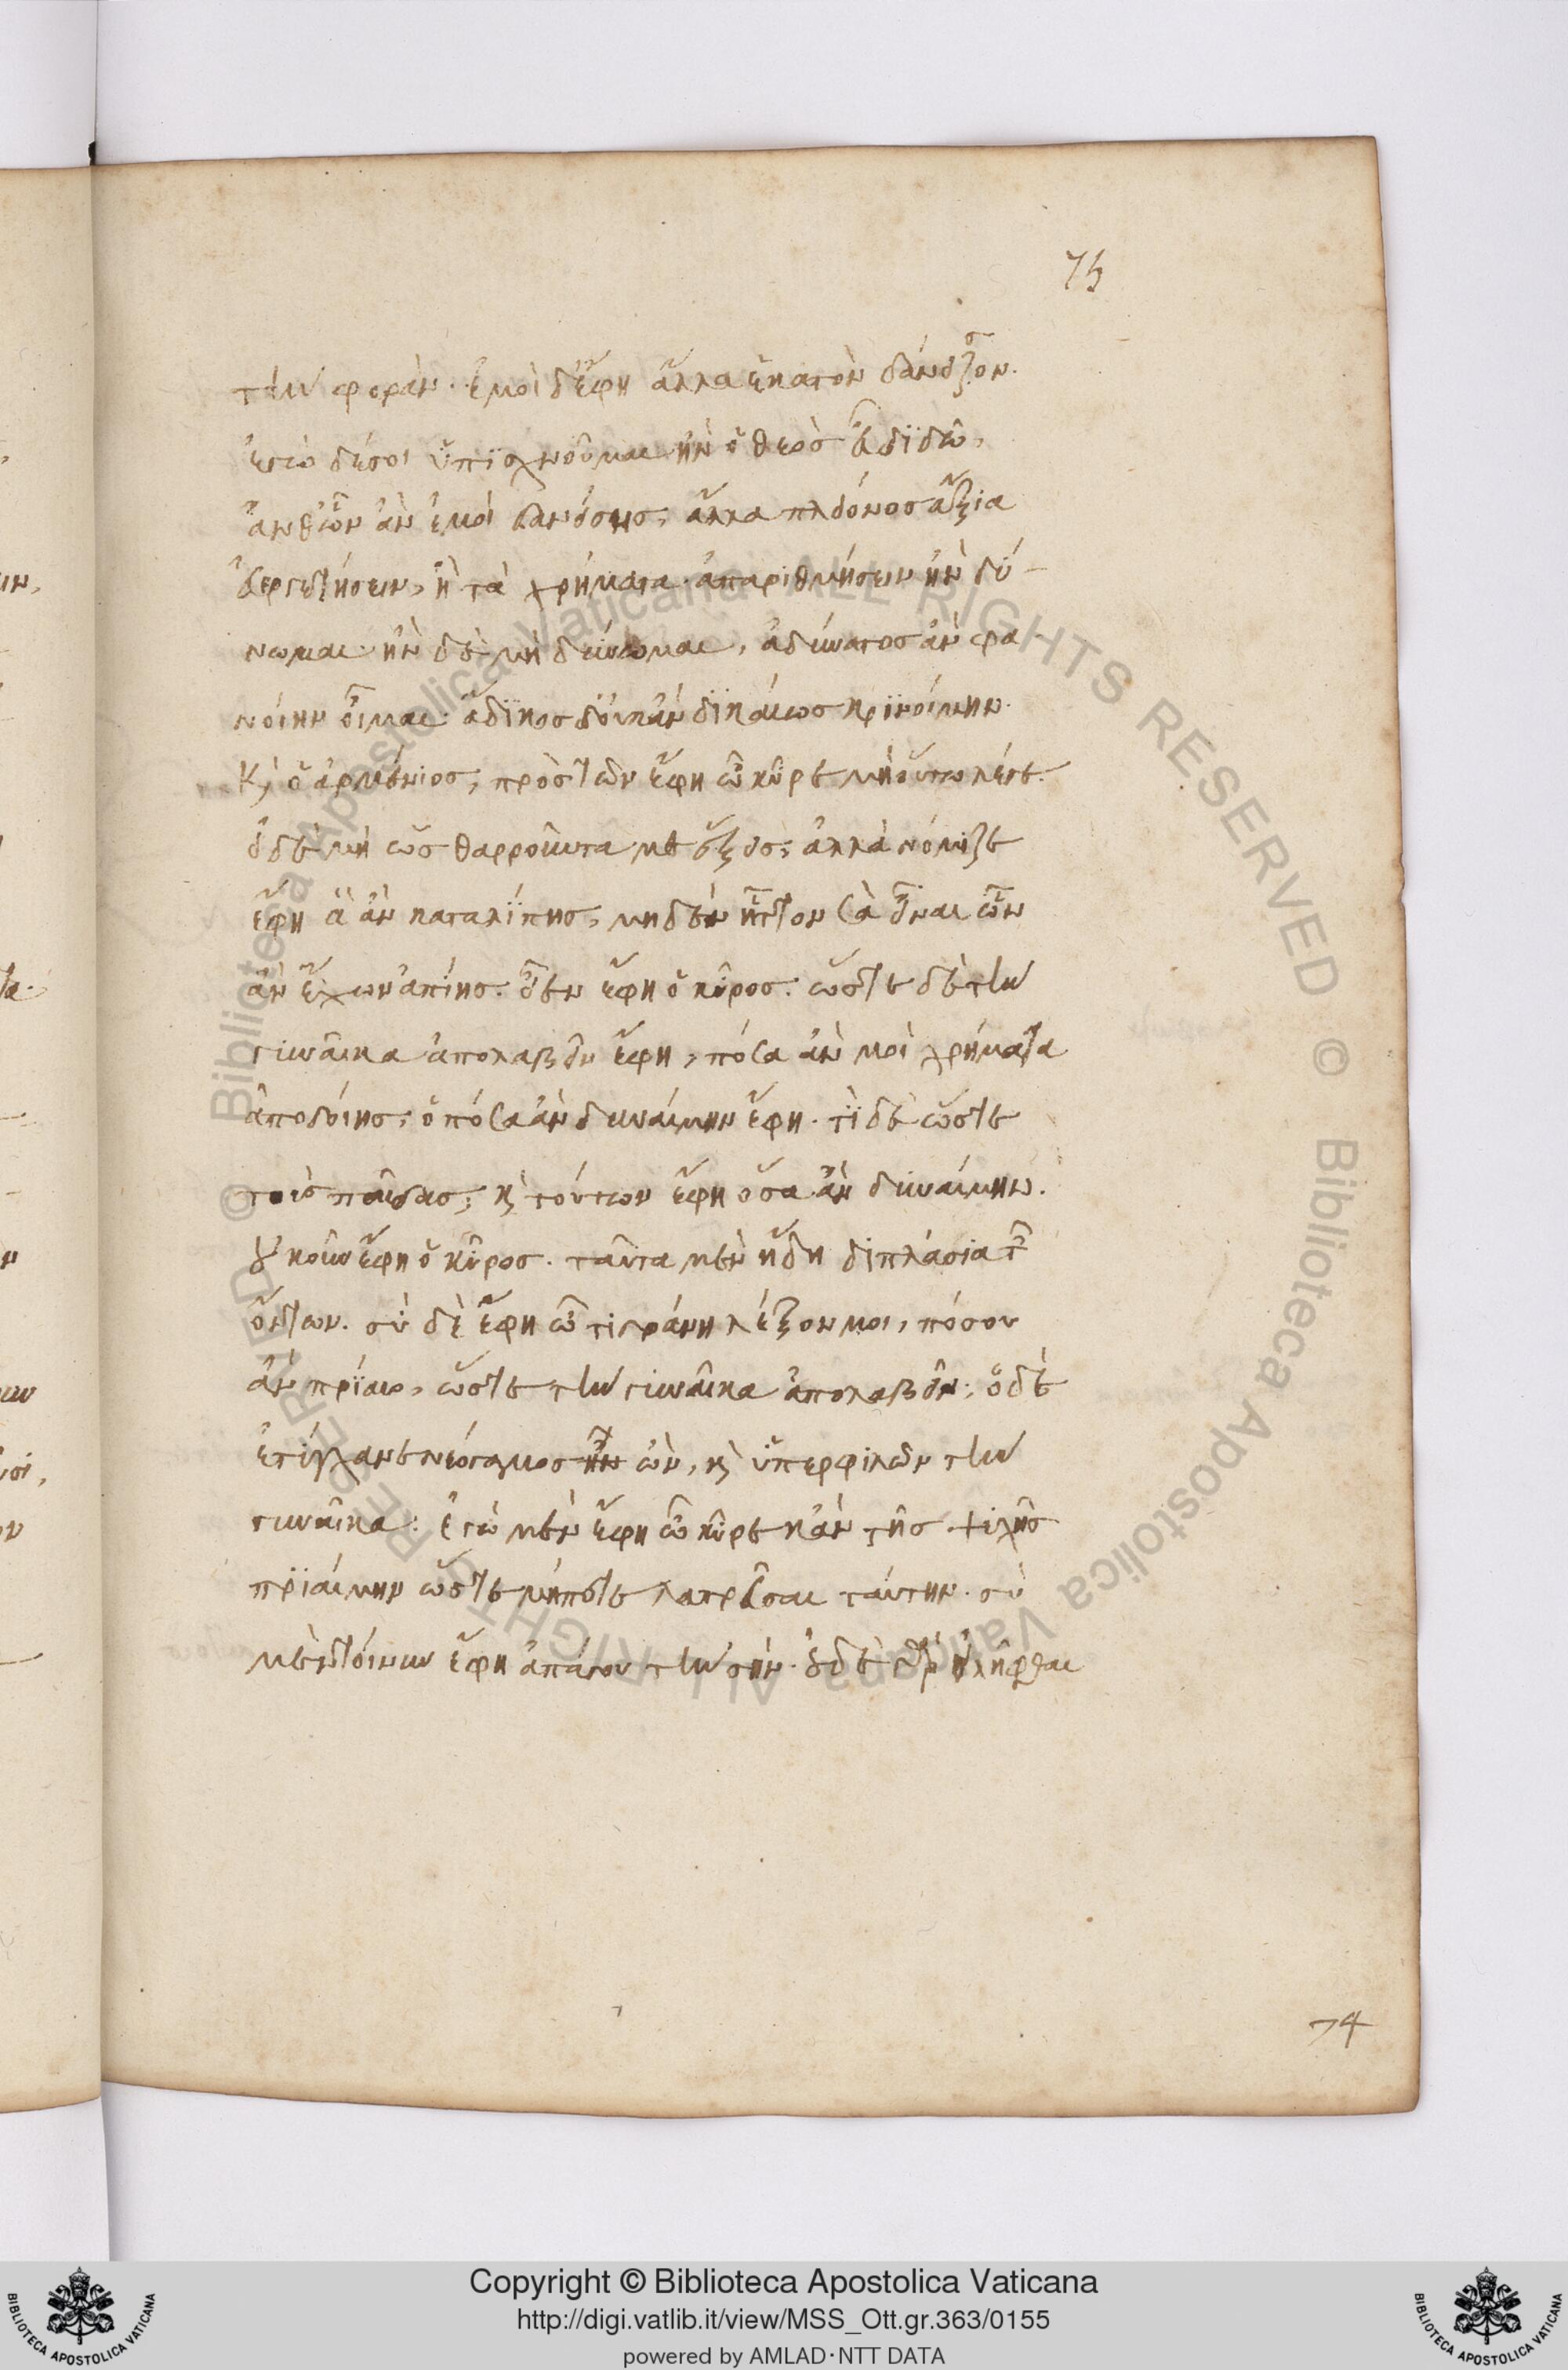 75
τὴν φορὰν. ἐμοὶ δ' ἔφη ἄλλα ἑκατὸν δάνεισον.
ἐγὼ δέ σοι ὑπϊσχνοῦμαι ἢν ὁ θεὸσ εὖ διδῶ,
ἀνθ' ὧν ἂν ἐμοὶ δανείσῃσ, ἄλλα πλείονοσ ἄξια
εὐεργετήσειν, ἢ τὰ χρήματα ἀπαριθμήσειν ἢν δύ-
νωμαι· ἢν δὲ μὴ δύνωμαι, ἀδύνατοσ ἂν φα
νοίην οἶμαι· ἄδϊκοσ δ' οὐκ ἂν δϊκαίωσ κρϊνοίμην.
Κὶ ὁ ἀρμένιοσ, πρὸσ τῶν ἔφη ὦ κῦρε μὴ οὕτω λέγε.
οὐδὲ μὴ ὣσ θαρροῦντα με ἕξεισ, ἀλλὰ νόμιζε
ἔφη ἃ ἂν καταλίπῃσ, μηδὲν ἧττον σὰ εἶναι ὧν
ἂν ἔχων ἀπίῃσ. εἶεν ἔφη ὁ κῦροσ. ὥστε δὲ τὴν
γυναῖκα ἀπολαβεῖν ἔφη, πόσα ἄν μοι χρήματα
ἀποδοίησ; ὁπόσα ἂν δυναίμην ἔφη. τί δὲ ὥστε
τοὺσ παῖδασ; κὶ τούτων ἔφη ὅσα ἂν δυναίμην.
οὐκοῦν ἔφη ὁ κῦροσ. ταῦτα μὲν ἤδη διπλάσια τῶν
ὄντων. σὺ δὲ ἔφη ὦ τιγράνη λέξον μοι, πόσου
ἂν πρίαιο, ὥστε τὴν γυναῖκα ἀπολαβεῖν; ὁ δὲ
ἐτύγχανε νεόγαμοσ ἢν ὢν, κὶ ὑπερφιλῶν τὴν
γυναῖκα: ἐγὼ μὲν ἔφη ὦ κῦρε κἂν τῆσ ψυχῆσ
πρϊαίμην ὥστε μήποτε λατρεῦσαι ταύτην. σὺ
μὲν τοίνυν ἔφη ἀπάγου τὴν σήν. οὐδὲ γὰρ εἰλῆφθαι
74
Copyright © Biblioteca Apostolica Vaticana
http://digi.vatlib.it/view/MSS_Ott.gr.363/0155
powered by AMLAD·NTT DATA